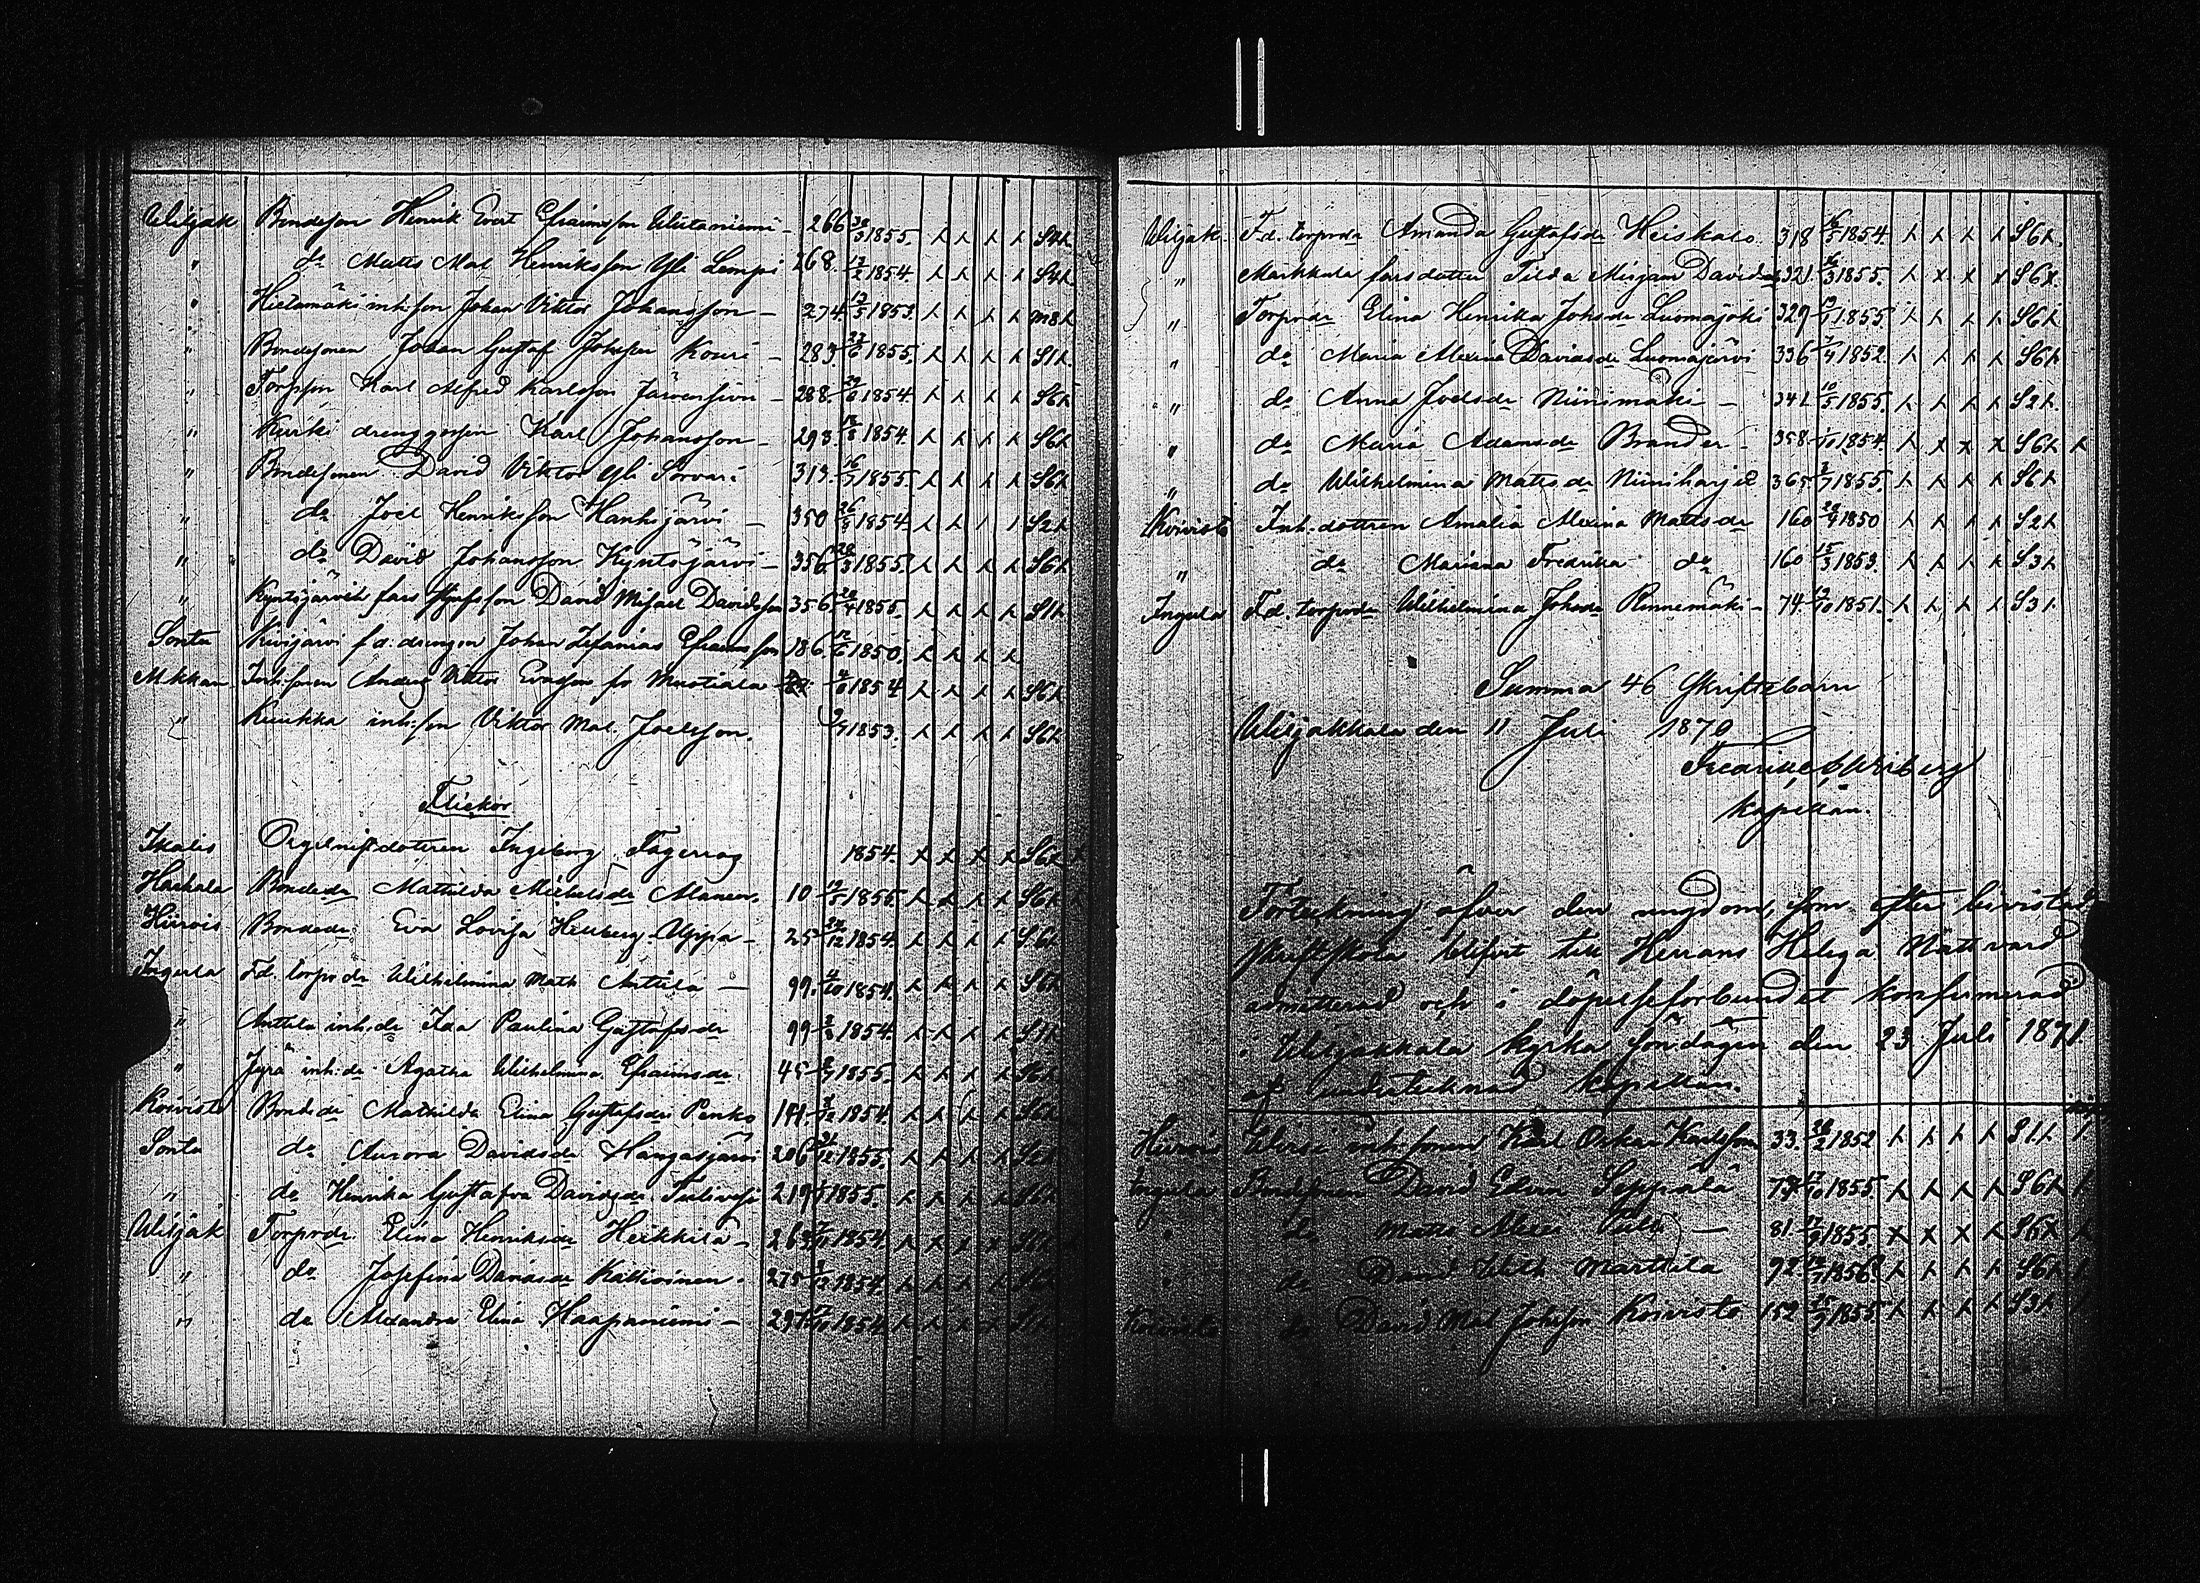 Wiljak Bondeson Henrik Evert Efraimsson Uutaniemi - 266 30/3 1855. S4
" do Matts Mat. Henriksson Yli Lempi 268. 12/2 1854. S4
" Hietamäki inh:son Johan Viktor Johansson - 274. 13/5 1853. m8
" Bondesonen Johan Gustaf Johsson Kouri - 283. 23/6 1855. S1
" Torpson Karl Alfred Karlsson Järvensivu - 288 1854. S6
" Kurki drenggosson Karl Johansson - 298. 1854. S6
" Bondesonen David Viktor Yli Sorvari 313. 16/7 1855. S6
" do Joel Henriksson Hanhijärvi - 350 26/8 1854. S2
" do David Johansson Kyntöjärvi - 356 28/3 1855. S6
" Kyntöjärvi fars son David Misael Davidsson 356 1855. S1
Sontu Kivijärvi f.d. drengen Johan Zefanias Efraimsson 186. 12/6 1850.
M.kkan Inh:sonen Anders Viktor Evasson fr Mustiala 1854 S6
" Kuukka inh:son Viktor Mat. Joelsson. 1853. S6
Flickor
Ikalis Orgelnistdottren Ingeborg Fagerrog 1854. S6
Haehala Bondeda Mathilda Michelsda Mansen. 10 1855. S6
Hiirois Bondeda Eva Lovisa Henberg. Uppa - 25 24/12 1854. S6
Ingula F.d. torprda Wilhelmina Math Anttila - 99. 4/10 1854. S6
" Anttila inh:da Ida Paulina Gustafsda 99 1854. S1
" Jyrä inh:da Agatha Wilhelmina Efraimsda. 45 1855. S6
Koivisto Bondeda Mathilda Elina Gustafsda Penko 141. 1854. S6
Sontu do Aurora Davidsda Hangasjärvi 206 1855. S2
" do Henrika Gustafva Davidsda 219 1855.
Wiljak Torprda Elina Henriksda Heikkilä - 263 1854 S6
" do Josefina Davidsda Kallioinen. 275 1854.
" do Alexandra Elina Haapaniemi - 297 1854
Wiljak. F.d. torprda Amanda Gustafsda Heiskala. 318 16/5 1854. S6
" Markkula farsdotter Tilda Mirjam Davidsda 321. 16/3 1855. S6
" Torprda Elina Henrika Johsda Luomajoki 329 19/1 1855. S6
" do Maria Alexina Davidsda Luomajärvi 336 7/4 1852. S6
" do Anna Joelsda Niinimäki - 341 10/5 1855. S2
" do Maria Adamsda Brander - 358 1854. S6
" do Wilhelmina Mattsda Niiniharju 365 1855. S6
Koivisto Inh:dottren Amalia Alexina Mattsda 160 28/4 1850 S2
" do Mariana Fredrika do 160 15/3 1853. S3
Ingula F.d. torprda Wilhelmina Johsda Rinnemäki - 74. 12/10 1851. S3
Summa 46 Skriftebarn
Wiljakkala den 11 Juli 1870
Fredrik Wiberg
Kapellan.
Förteckning öfver den ungdom, som efter bevistad
skriftskola blifvit till Herrans Heliga Nattvard
admitterad och i döpelseförbundet konfirmerad
i Wiljakkala kyrka söndagen den 23 Juli 1871
af undertecknad kapellan.
Hiirois inh:sonen Karl Oskar Karlsson 33. 28/2 1852 S1
Ingula Bondesonen David Edvin Seppälä 73 1855 S6
" do Matts Alexi 81. 1855. S6
" do David Marttila 92 1856 S6
Koivisto do David Mat Johsson Koivisto 152 25/9 1855. S3